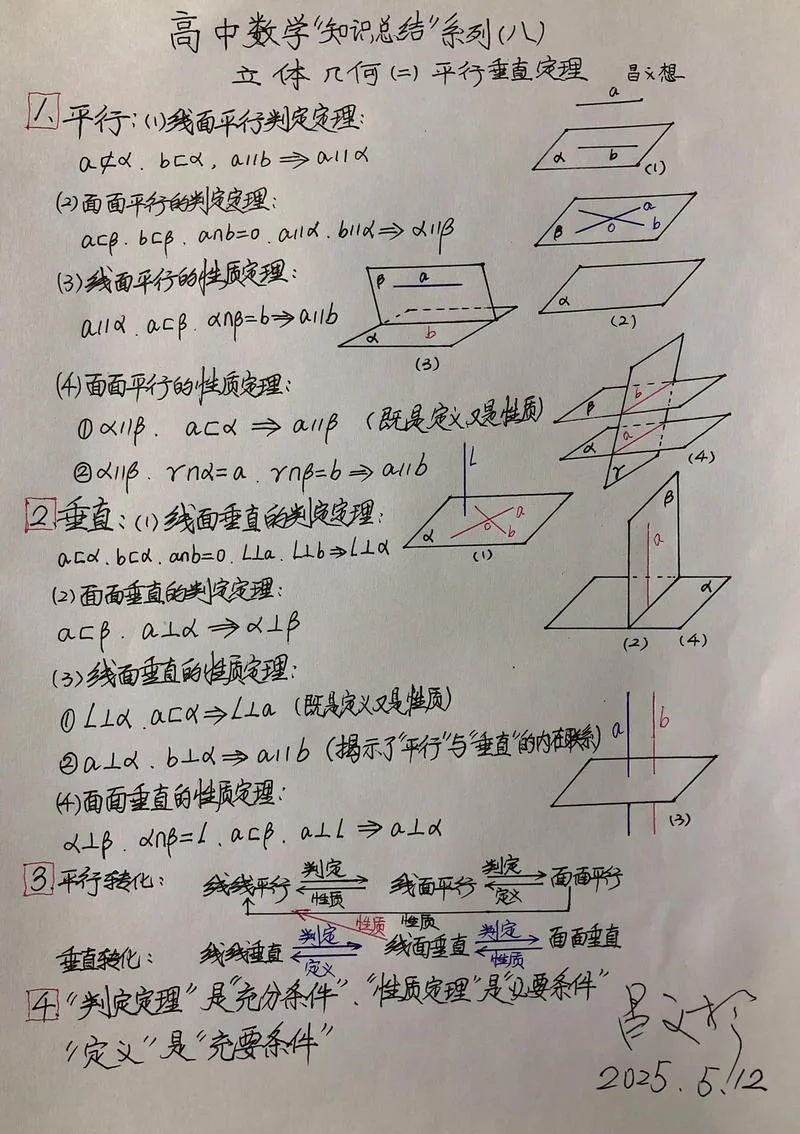 高中数学"知识总结"系列(八)
立体几何(二) 平行垂直定理 昌文想
1、平行:(1)线面平行判定定理:
a⊄α、b⊂α, a∥b⇒a∥α
(2)面面平行的判定定理:
a⊂β、b⊂β、a∩b=0、a∥α、b∥α⇒α∥β
(3)线面平行的性质定理:
a∥α、a⊂β、α∩β=b⇒a∥b
(4)面面平行的性质定理:
①α∥β、 a⊂α ⇒ a∥β (既是定义又是性质)
②α∥β、γ∩α=a、γ∩β=b⇒a∥b
a
α b
(1)
β a 0 b
α
(2)
β a
α b
(3)
β b
α a
γ (4)
2 垂直:(1)线面垂直的判定定理:
a⊂α、b⊂α、a∩b=0、L⊥a、L⊥b⇒L⊥α
(2)面面垂直的判定定理:
a⊂β、a⊥α⇒α⊥β
(3)线面垂直的性质定理:
①L⊥α、a⊂α⇒L⊥a (既是定义又是性质)
②a⊥α、b⊥α⇒a∥b (揭示了"平行"与"垂直"的内在联系)
(4)面面垂直的性质定理:
α⊥β、α∩β=L、a⊂β、a⊥L⇒a⊥α
L
α 0 a b
(1)
β
a
α
(2) (4)
a b
(3)
3 平行转化: 线线平行 判定 性质 线面平行 判定 定义 面面平行
性质 性质
垂直转化: 线线垂直 判定 定义 线面垂直 判定 性质 面面垂直
4 "判定定理"是"充分条件"、"性质定理"是"必要条件"
"定义"是"充要条件"
2025.5.12